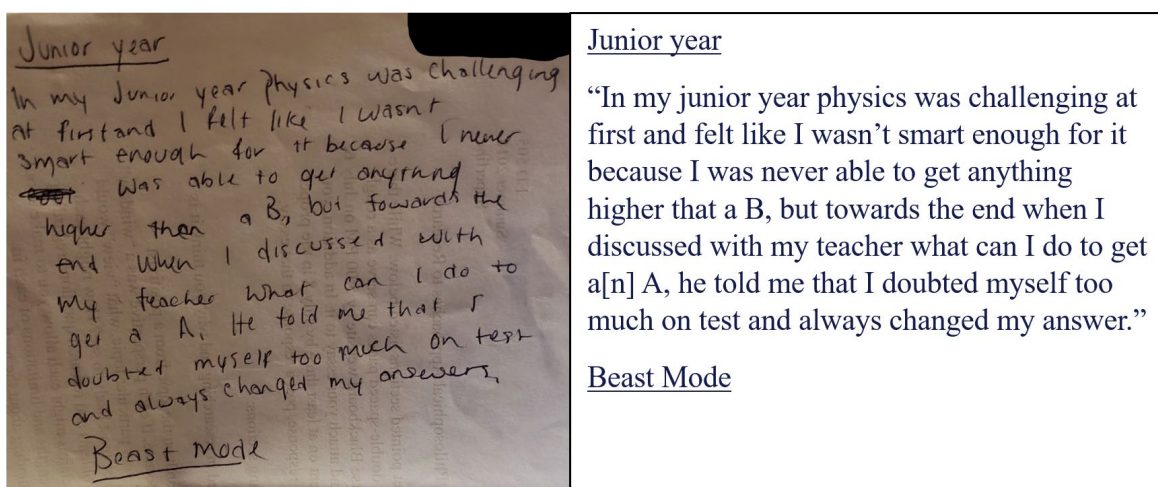 Junior year
In my Junior year Physics was challenging
at first and I felt like I wasnt
smart enough for it because I never
was able to get anything
higher then a B, but towards the
end when I discussed with
my teacher what can I do to
get a A, He told me that I
doubted myself too much on test
and always changed my answers,
Beast mode
Junior year
“In my junior year physics was challenging at
first and felt like I wasn’t smart enough for it
because I was never able to get anything
higher that a B, but towards the end when I
discussed with my teacher what can I do to get
a[n] A, he told me that I doubted myself too
much on test and always changed my answer.”
Beast Mode